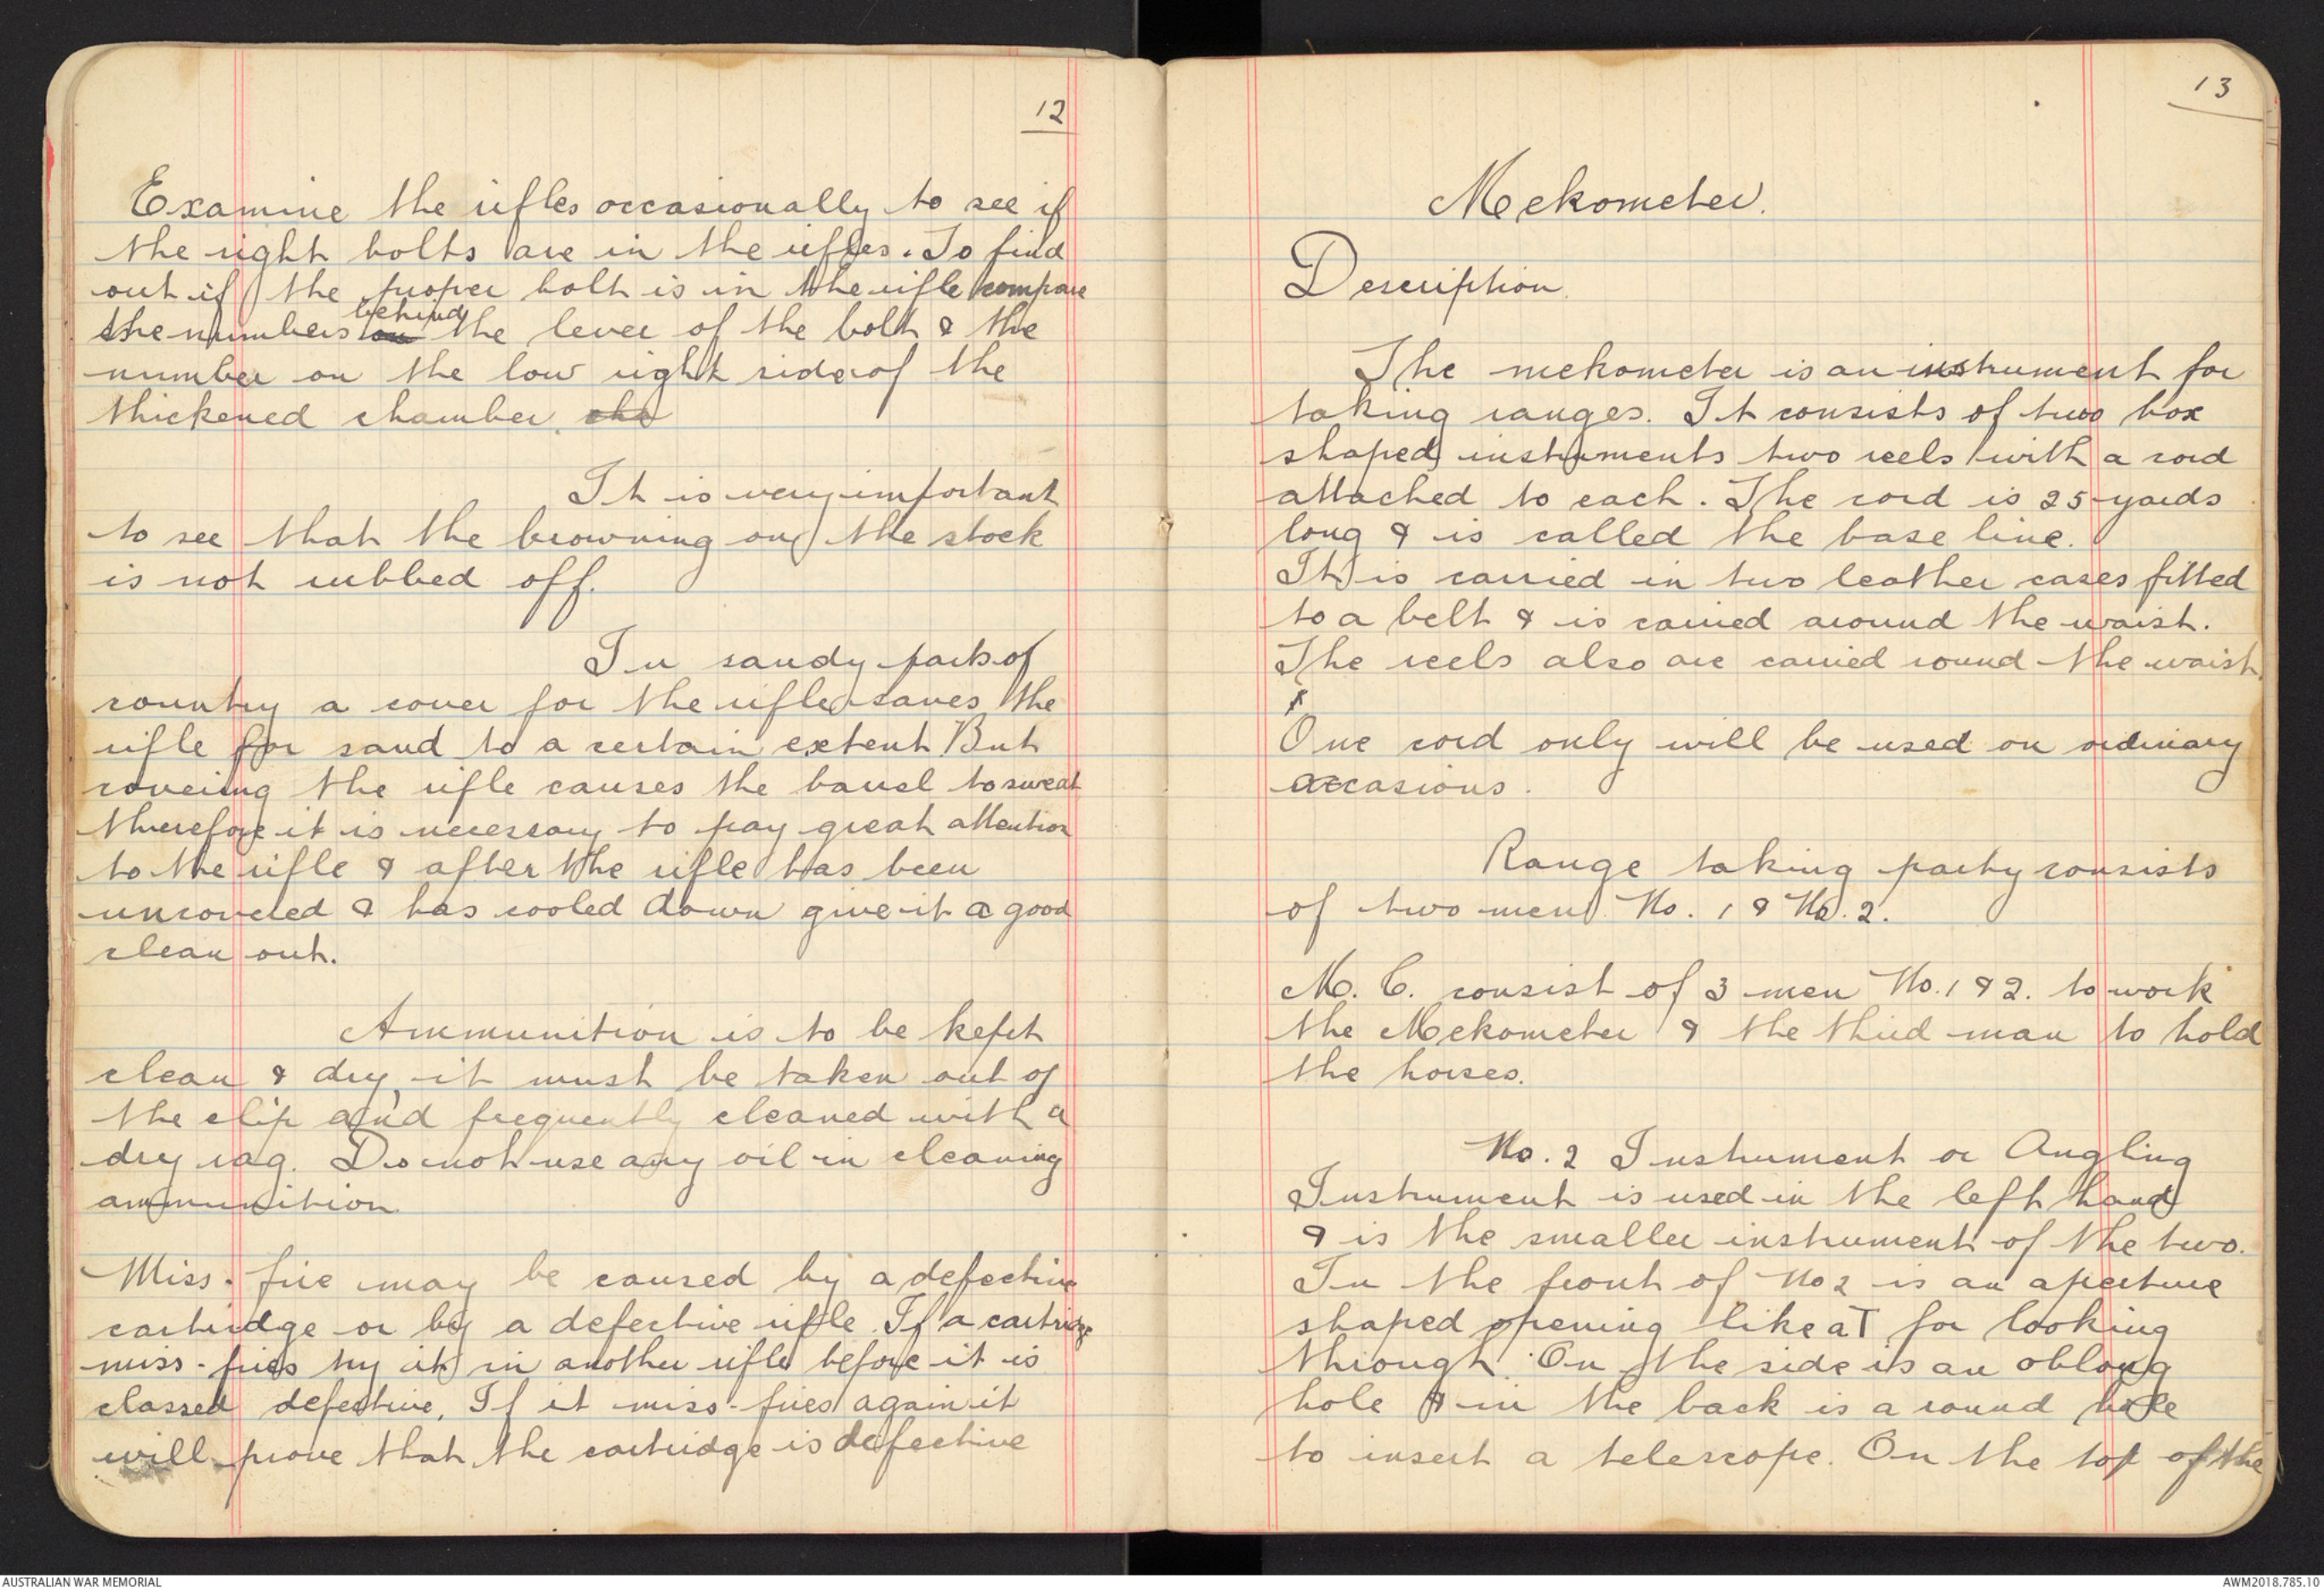 12
Examine the rifles occasionally to see if
the right bolts are in the rifles. To find
out if the proper bolt is in the rifle compare
behind
the numbers on the lever of the bolt & the
number on the low right side of the
thickened chamber. cha
It is very important
to see that the browning on the stock
is not rubbed off.
In sandy parts of
country a cover for the rifle saves the
rifle for sand to a certain extent But
coveiing the rifle causes the barrel to sweat
therefore it is necessary to pay great attention
to the rifle & after the rifle has been
uncovered & has cooled down give it a good
clean out.
Ammunition is to be kept
clean & dry, it must be taken out of
the clip and frequently cleaned with a
dry rag. Do not use any oil in cleaning
ammunition
Miss-fire may be caused by a defective
cartridge or by a defective rifle. If a cartridge
miss-fires try it in another rifle before it is
classed defective. If it miss-fires again it
will prove that the cartridge is defective
13
Mekometer.
Description.
The mekometer is an instrument for
taking ranges. It consists of two box
shaped instruments two reels with a cord
attached to each. The cord is 25 yards
long & is called the base line.
It is carried in two leather cases fitted
to a belt & is carried around the waist.
The reels also are carried round the waist.
One cord only will be used on ordinary
occasions.
Range taking party consists
of two men No. 1 & No. 2.
M. C. consist of 3 men No. 1 & 2. to work
the Mekometer & the third man to hold
the horses.
No. 2 Instrument or Angling
Instrument is used in the left hand
& is the smaller instrument of the two.
In the front of No 2 is an aperture
shaped opening like a T for looking
through. On the side is an oblong
hole & in the back is a round hole
to insert a telescope. On the top of the
AUSTRALIAN WAR MEMORIAL
AWM2018.785.10